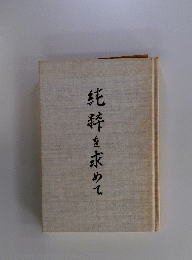 純粋を求めて